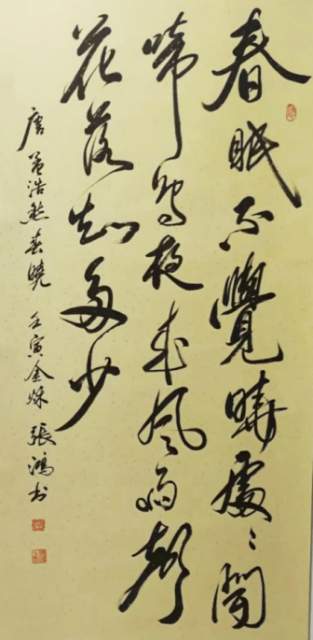 春眠不覺曉處々聞
啼鳥夜來風雨聲
花落知多少
唐孟浩然春曉 壬寅金秋 張鴻書